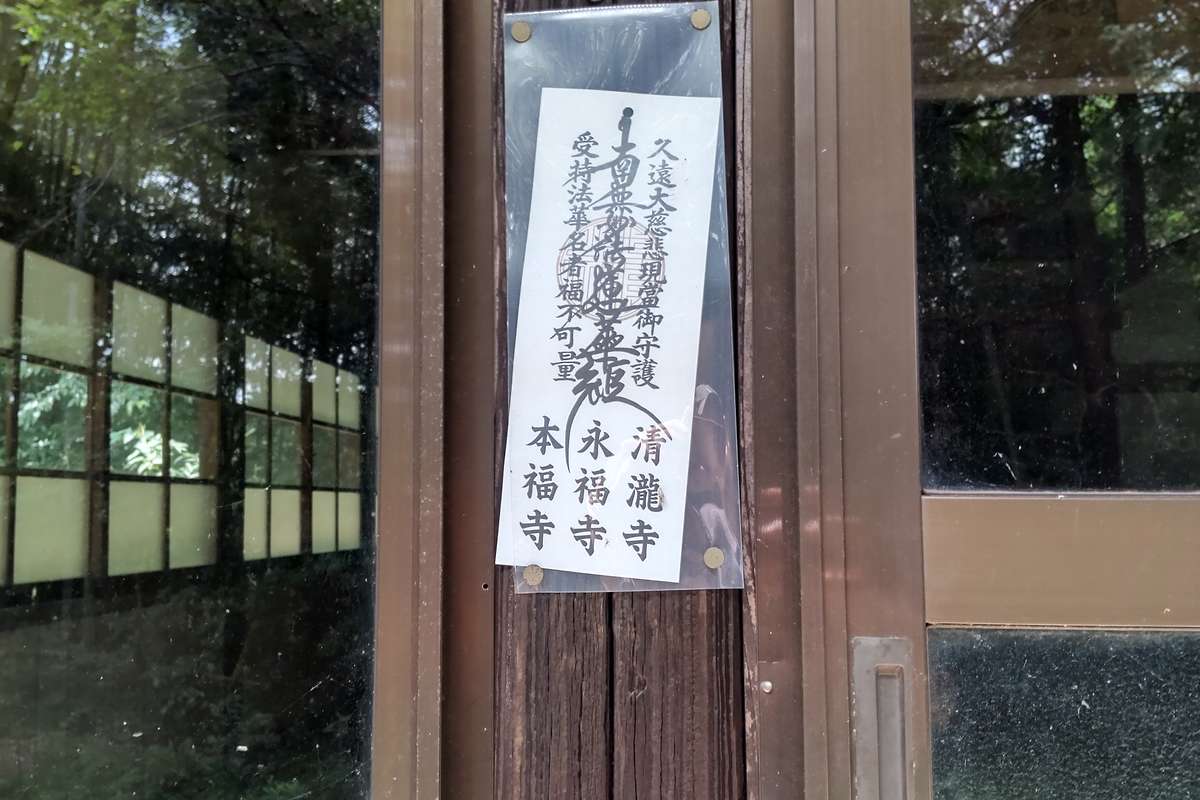 久遠大慈悲現當御守護
南無妙法蓮華経
受持法華名者福不可量
清瀧寺
永福寺
本福寺